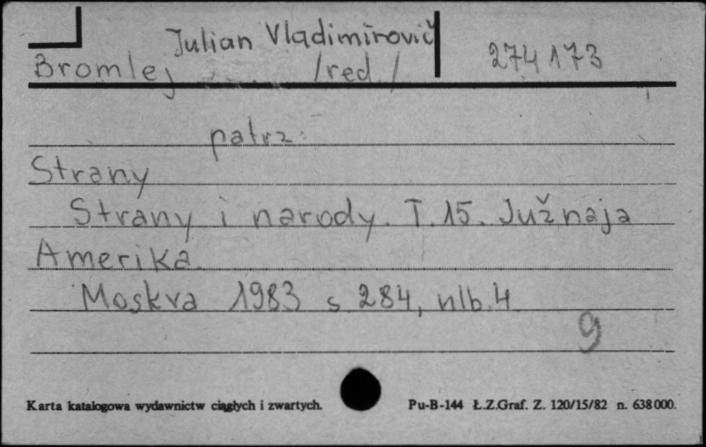 Julian Vladimirovič
Bromlej /red./ 274173
patrz:
Strany
Strany i narody. T. 15. Južnaja
Amerika.
Moskva 1983 s. 284, nlb. 4
9
Karta katalogowa wydawnictw ciągłych i zwartych. Pu-B-144 Ł.Z.Graf. Z. 120/15/82 n. 638000.